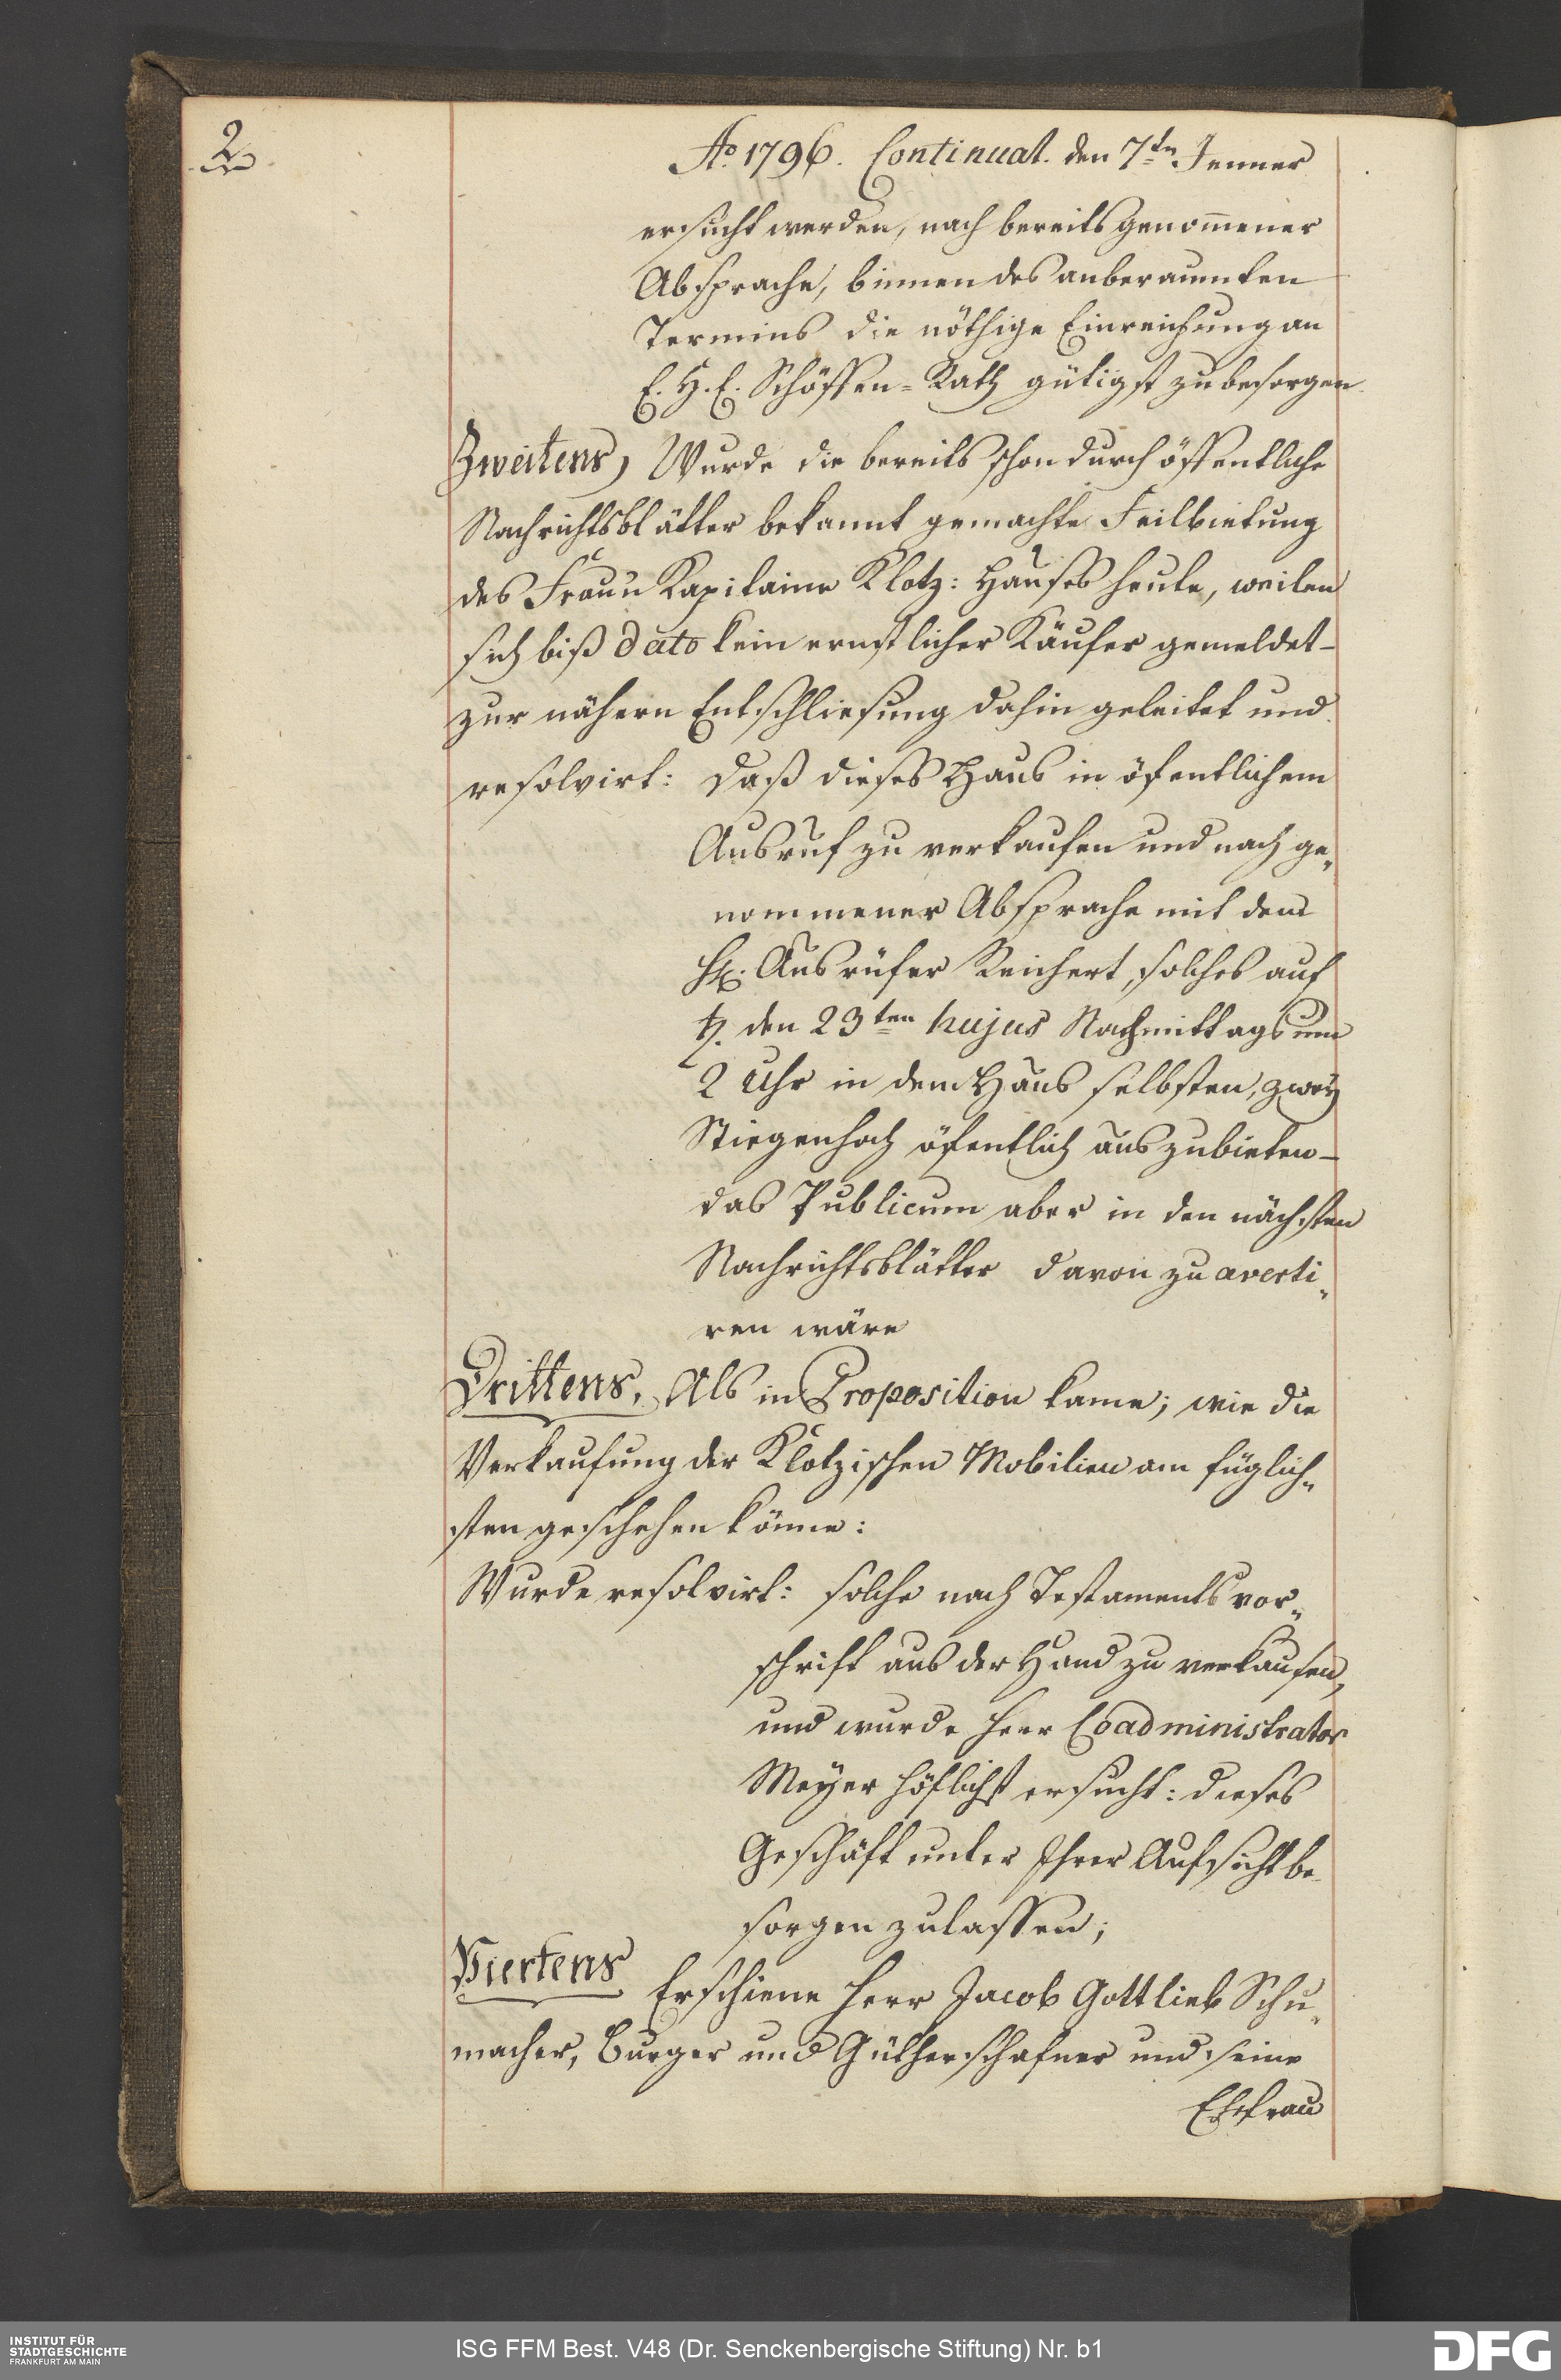 2
Ao. 1796. Continuat. den 7ten Jenner
ersucht werden, nach bereits genom̅ener
Absprache, binnen des anberaumten
Termins die nöthige Einreichung an
E. H. E. Schöffen-Rath gütigst zu besorgen
Zweitens, Wurde die bereits schon durch öffentliche
Nachrichtsblätter bekannt gemachte Feilbietung
des Frauu Kapitaine Klotz: Hauses heute, weilen
sich biß dato kein ernstlicher Käufer gemeldet -
zur nähern Entschliesung dahin geleitet und
resolvirt: daß dieses Haus in öfentlichem
Ausruf zu verkaufen und nach ge„
nommener Absprache mit dem
H. Ausrüfer Reichert, solches auf
♄. den 23ten hujus Nachmittags um
2 Uhr in dem Haus selbsten, zwey
Stiegenhoch öfentlich auszubieten -
das Publicum aber in den nächsten
Nachrichtsblätter davon zu averti„
ren wäre
Drittens, Als in Proposition kame; wie die
Verkaufung der Klotzischen Mobilien am füglich„
sten geschehen könne:
Wurde resolvirt: solche nach Testaments vor„
schrift aus der Hand zu verkaufen,
und wurde Herr Coadministrator
Meyer höflichst ersucht: dieses
Geschäft unter Ihrer Aufsicht be
sorgen zulassen;
Viertens Erschiene Herr Jacob Gottlieb Schu„
macher, Burger und Gütherschafner und seine
Ehefrau
INSTITUT FÜR
STADTGESCHICHTE
FRANKFURT AM MAIN
ISG FFM Best. V48 (Dr. Senckenbergische Stiftung) Nr. b1
DFG